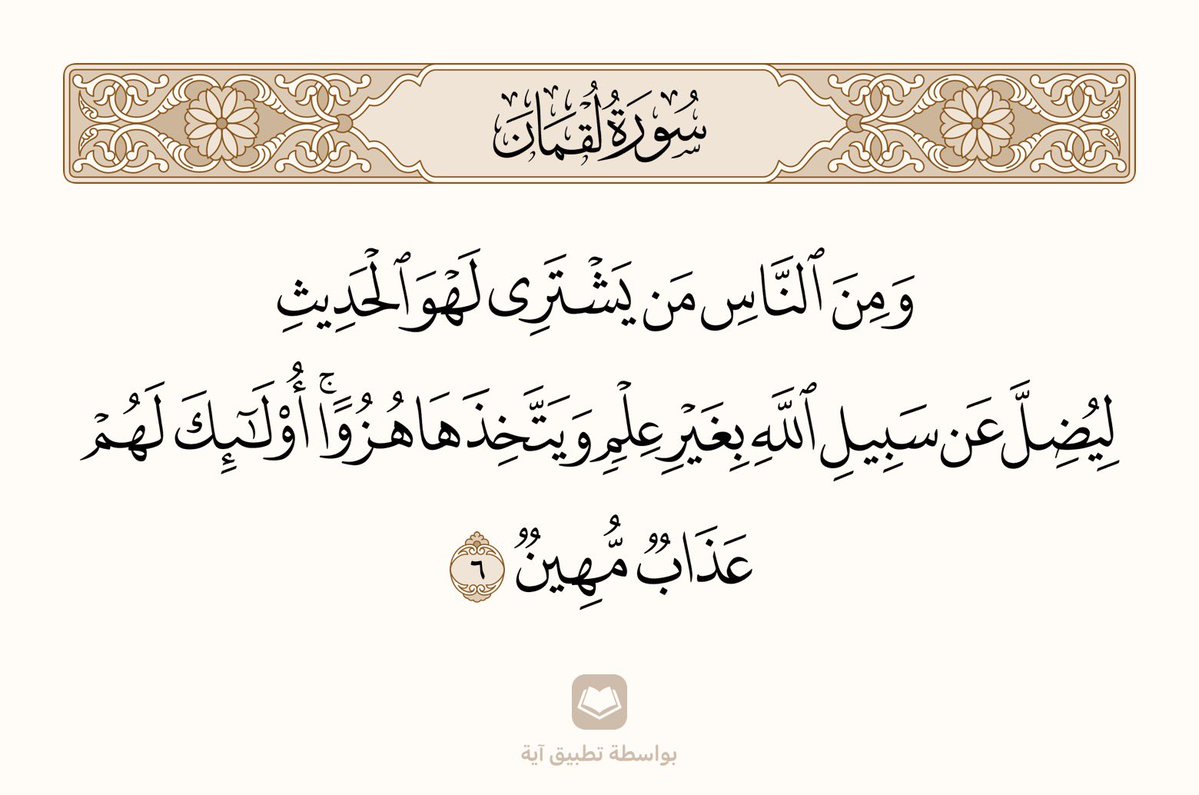 سُورَةُ لُقۡمَانَ
وَمِنَ ٱلنَّاسِ مَن يَشۡتَرِى لَهۡوَ ٱلۡحَدِيثِ
لِيُضِلَّ عَن سَبِيلِ ٱللَّهِ بِغَيۡرِ عِلۡمٖ وَيَتَّخِذَهَا هُزُوًاۚ أُوْلَٰٓئِكَ لَهُمۡ
عَذَابٞ مُّهِينٞ ٦
بواسطة تطبيق آية